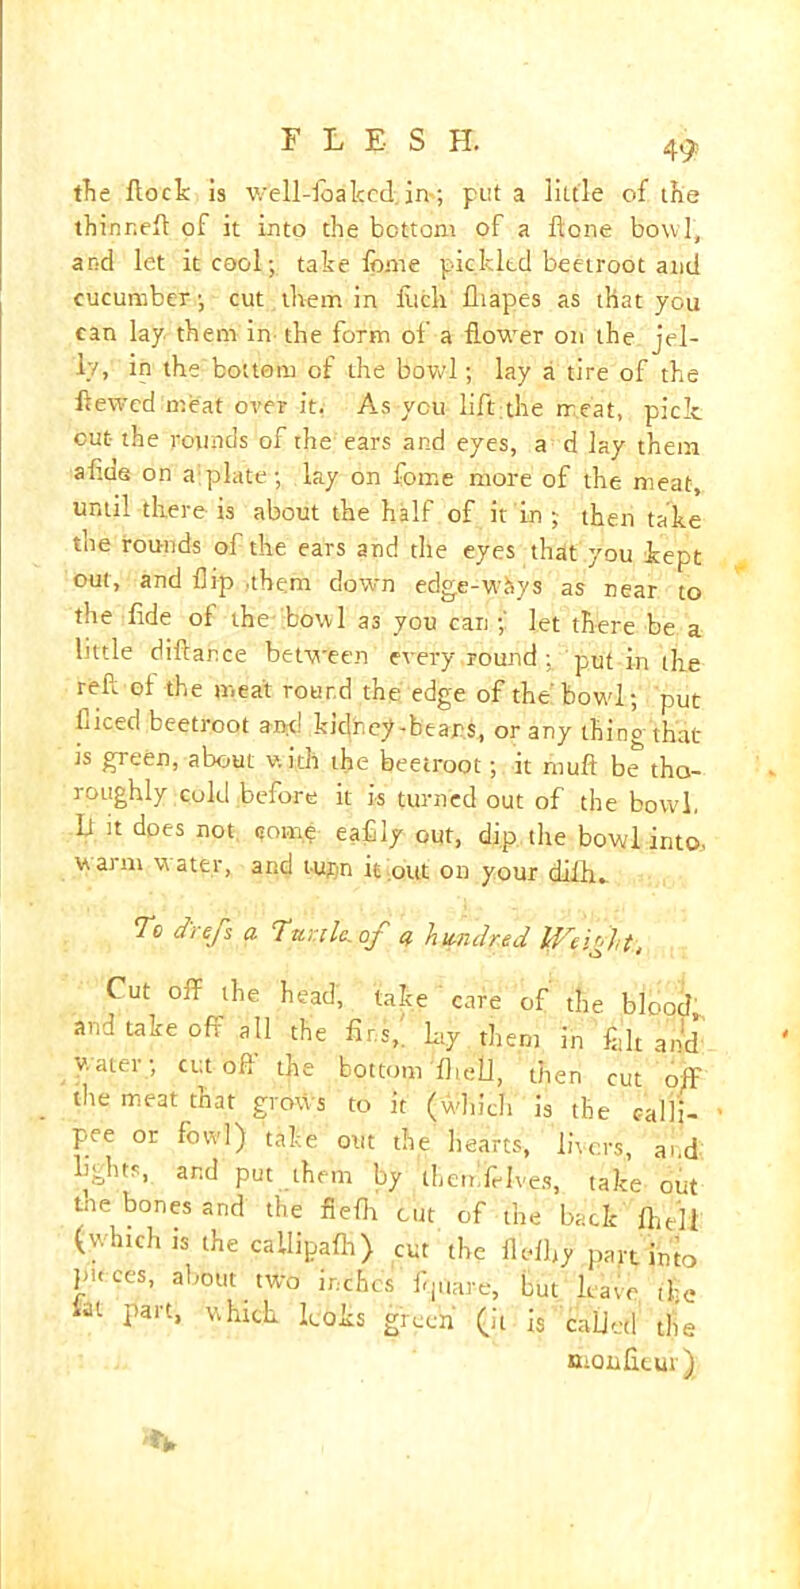 FLESH. 49
the ſtock is well-ſoaked in; put a little of the
thinneſt of it into the bottom of a ſtone bowl,
and let it cool; take ſome pickled beetroot and
cucumber; cut them in ſuch ſhapes as that you
can lay them in the form of a flower on the jel-
ly, in the bottom of the bowl; lay a tire of the
ſtewed meat over it. As you lift the meat, pick
out the rounds of the ears and eyes, a d lay them
aſide on a plate; lay on ſome more of the meat,
until there is about the half of it in; then take
the rounds of the ears and the eyes that you kept
out, and ſlip them down edge-ways as near to
the ſide of the bowl as you can; let there be a
little diſtance between every round; put in the
reſt of the meat round the edge of the bowl; put
ſliced beetroot and kidney-beans, or any thing that
is green, about with the beetroot; it muſt be tho-
roughly cold before it is turned out of the bowl.
If it does not come eaſily out, dip the bowl into
warm water, and turn it out on your diſh.
To dreſs a Turtle of a hundred Weight.
Cut off the head, take care of the blood,
and take off all the fins, lay them in ſalt and
water; cut off the bottom ſhell, then cut off
the meat that grows to it (which is the calli-
pee or fowl) take out the hearts, livers, and
lights, and put them by themſelves, take out
the bones and the fleſh out of the back ſhell
(which is the callipaſh) cut the fleſhy part into
pieces, about two inches ſquare, but leave the
fat part, which looks green (it is called the
monſieur)